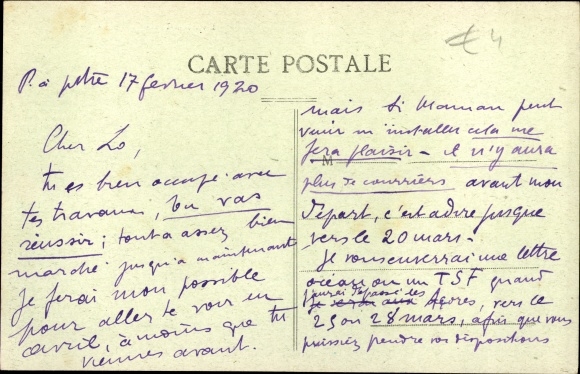 € 4
CARTE POSTALE
P. à pitre 17 fevrier 1920
Cher Lo,
tu es bien occupé avec
tes travaux, tu vas
réussir; tout a assez bien
marché jusqu'à maintenant
je ferai mon possible
pour aller te voir en
avril, à moins que tu
viennes avant.
mais si Maman peut
venir m'installer cela me
fera plaisir - il n'y aura
plus de courriers avant mon
départ, c'est à dire jusque
vers le 20 mars -
Je vous enverrai une lettre
océan ou un TSF quand
j'aurai dépassé les
je serai aux Açores, vers le
25 ou 28 mars, afin que vous
puissiez prendre vos dispositions